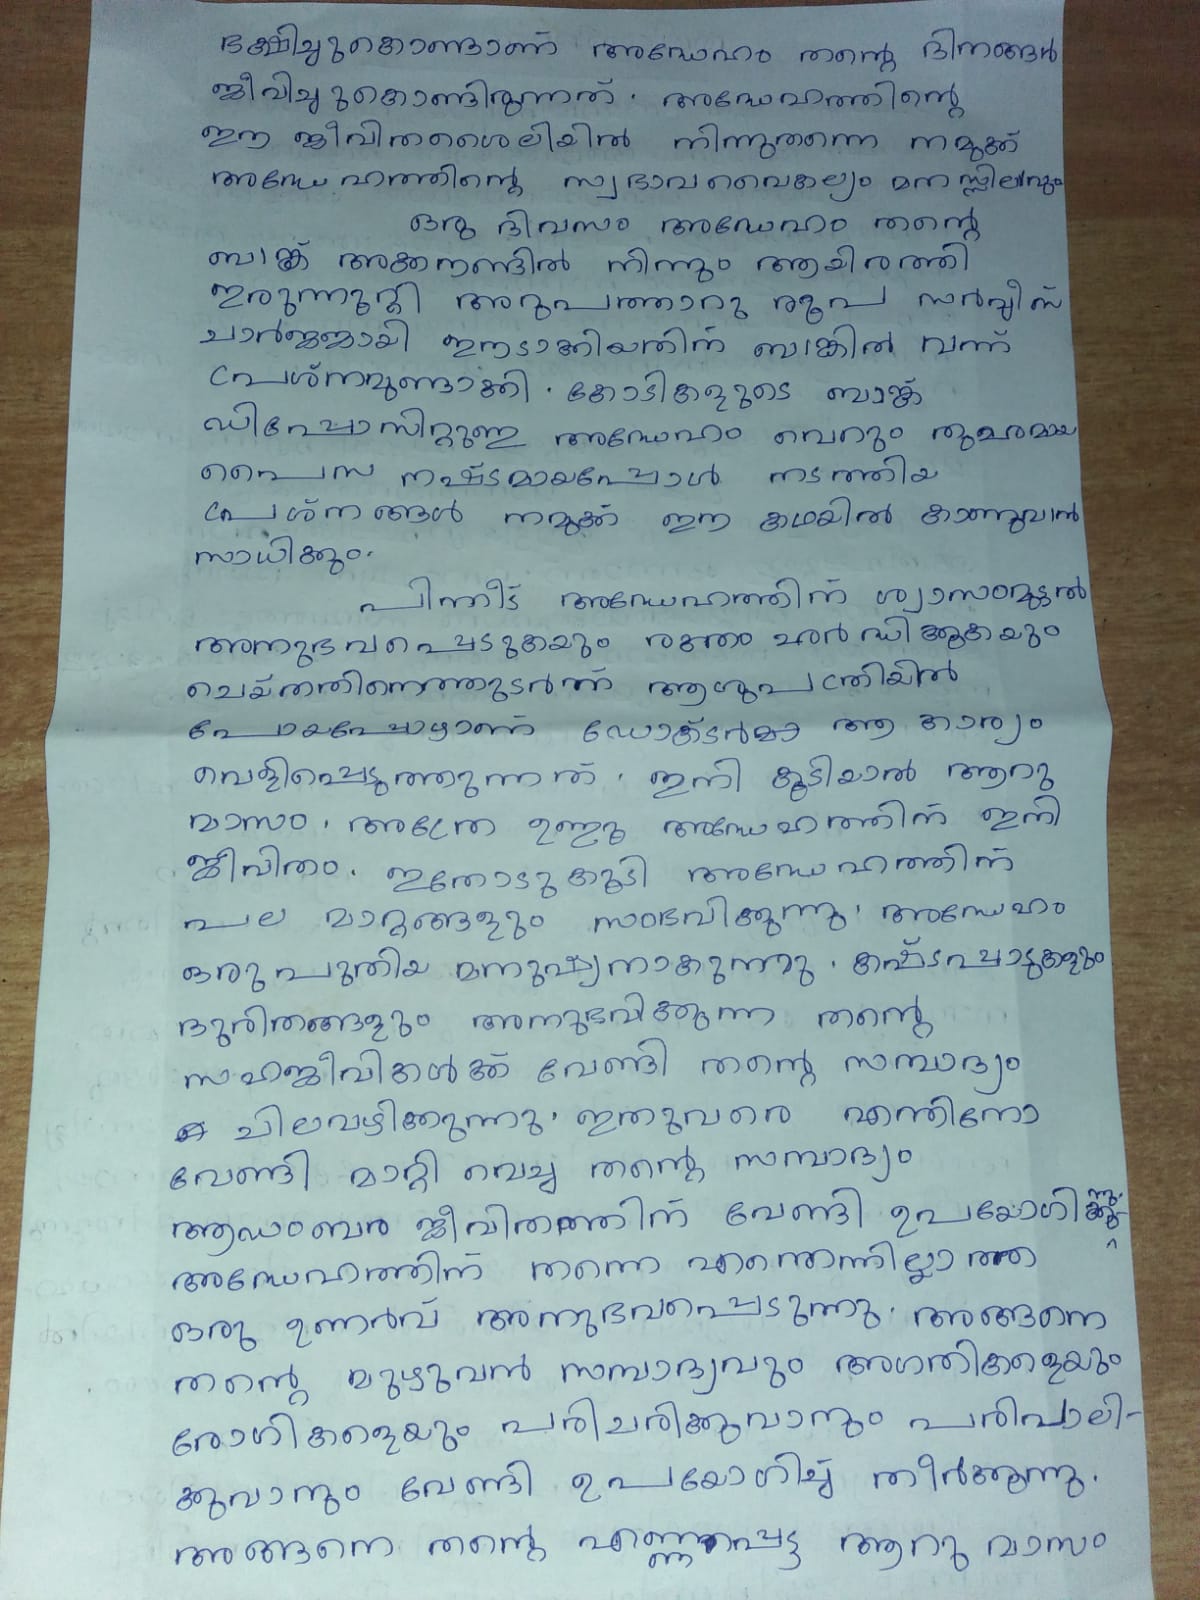 ഭക്ഷിച്ചുകൊണ്ടാണ് അദ്ധേഹം തന്റെ ദിനങ്ങൾ
ജീവിച്ചുകൊണ്ടിരുന്നത്. അദ്ധേഹത്തിന്റെ
ഈ ജീവിതശൈലിയിൽ നിന്നുതന്നെ നമുക്ക്
അദ്ധേഹത്തിന്റെ സ്വഭാവവൈകല്യം മനസ്സിലാവും
ഒരു ദിവസം അദ്ധേഹം തന്റെ
ബാങ്ക് അക്കൗണ്ടിൽ നിന്നും ആയിരത്തി
ഇരുന്നൂറ്റി അറുപത്താറു രൂപ സർവ്വീസ്
ചാർജ്ജായി ഈടാക്കിയതിന് ബാങ്കിൽ വന്ന്
പ്രേശ്നമുണ്ടാക്കി. കോടികളുടെ ബാങ്ക്
ഡിപ്പോസിറ്റുള്ള അദ്ധേഹം വെറും തുച്ഛമായ
പൈസ നഷ്ടമായപ്പോൾ നടത്തിയ
പ്രേശ്നങ്ങൾ നമുക്ക് ഈ കഥയിൽ കാണുവാൻ
സാധിക്കും.
പിന്നീട് അദ്ധേഹത്തിന് ശ്വാസംമുട്ടൽ
അനുഭവപ്പെടുകയും രക്തം ഛർദ്ധിക്കുകയും
ചെയ്തതിനെത്തുടർന്ന് ആശുപത്രിയിൽ
പോയപ്പോഴാണ് ഡോക്ടർമാ ആ കാര്യം
വെളിപ്പെടുത്തുന്നത്. ഇനി കൂടിയാൽ ആറു
മാസം. അത്രേ ഉണ്ടു അദ്ധേഹത്തിന് ഇനി
ജീവിതം. ഇതോടുകൂടി അദ്ധേഹത്തിന്
പല മാറ്റങ്ങളും സംഭവിക്കുന്നു. അദ്ധേഹം
ഒരു പുതിയ മനുഷ്യനാകുന്നു. കഷ്ടപ്പാടുകളും
ദുരിതങ്ങളും അനുഭവിക്കുന്ന തന്റെ
സഹജീവികൾക്ക് വേണ്ടി തന്റെ സമ്പാദ്യം
ചിലവഴിക്കുന്നു. ഇതുവരെ എന്തിനോ
വേണ്ടി മാറ്റി വെച്ച തന്റെ സമ്പാദ്യം
ആഡംബര ജീവിതത്തിന് വേണ്ടി ഉപയോഗിക്കുന്നു.
അദ്ധേഹത്തിന് തന്നെ എന്തെന്നില്ലാത്ത
ഒരു ഉണർവ് അനുഭവപ്പെടുന്നു. അങ്ങനെ
തന്റെ മുഴുവൻ സമ്പാദ്യവും അഗതികളെയും
രോഗികളെയും പരിചരിക്കുവാനും പരിപാലി-
ക്കുവാനും വേണ്ടി ഉപയോഗിച്ച് തീർക്കുന്നു.
അങ്ങനെ തന്റെ എണ്ണപ്പെട്ട ആറു മാസം